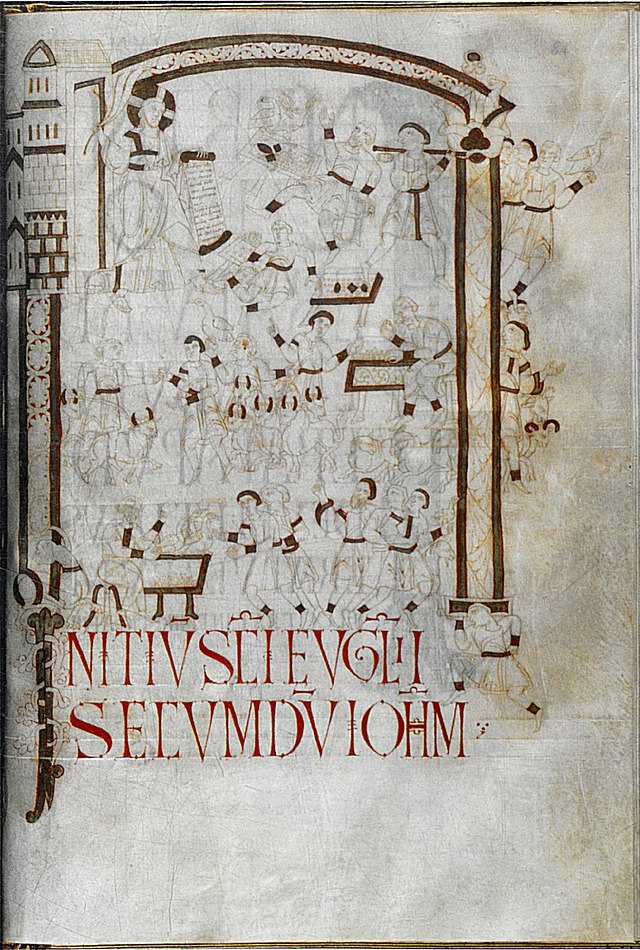 INITIV̄ SC̄I EVGL̄II
SECVMDV̄ IOH̄M